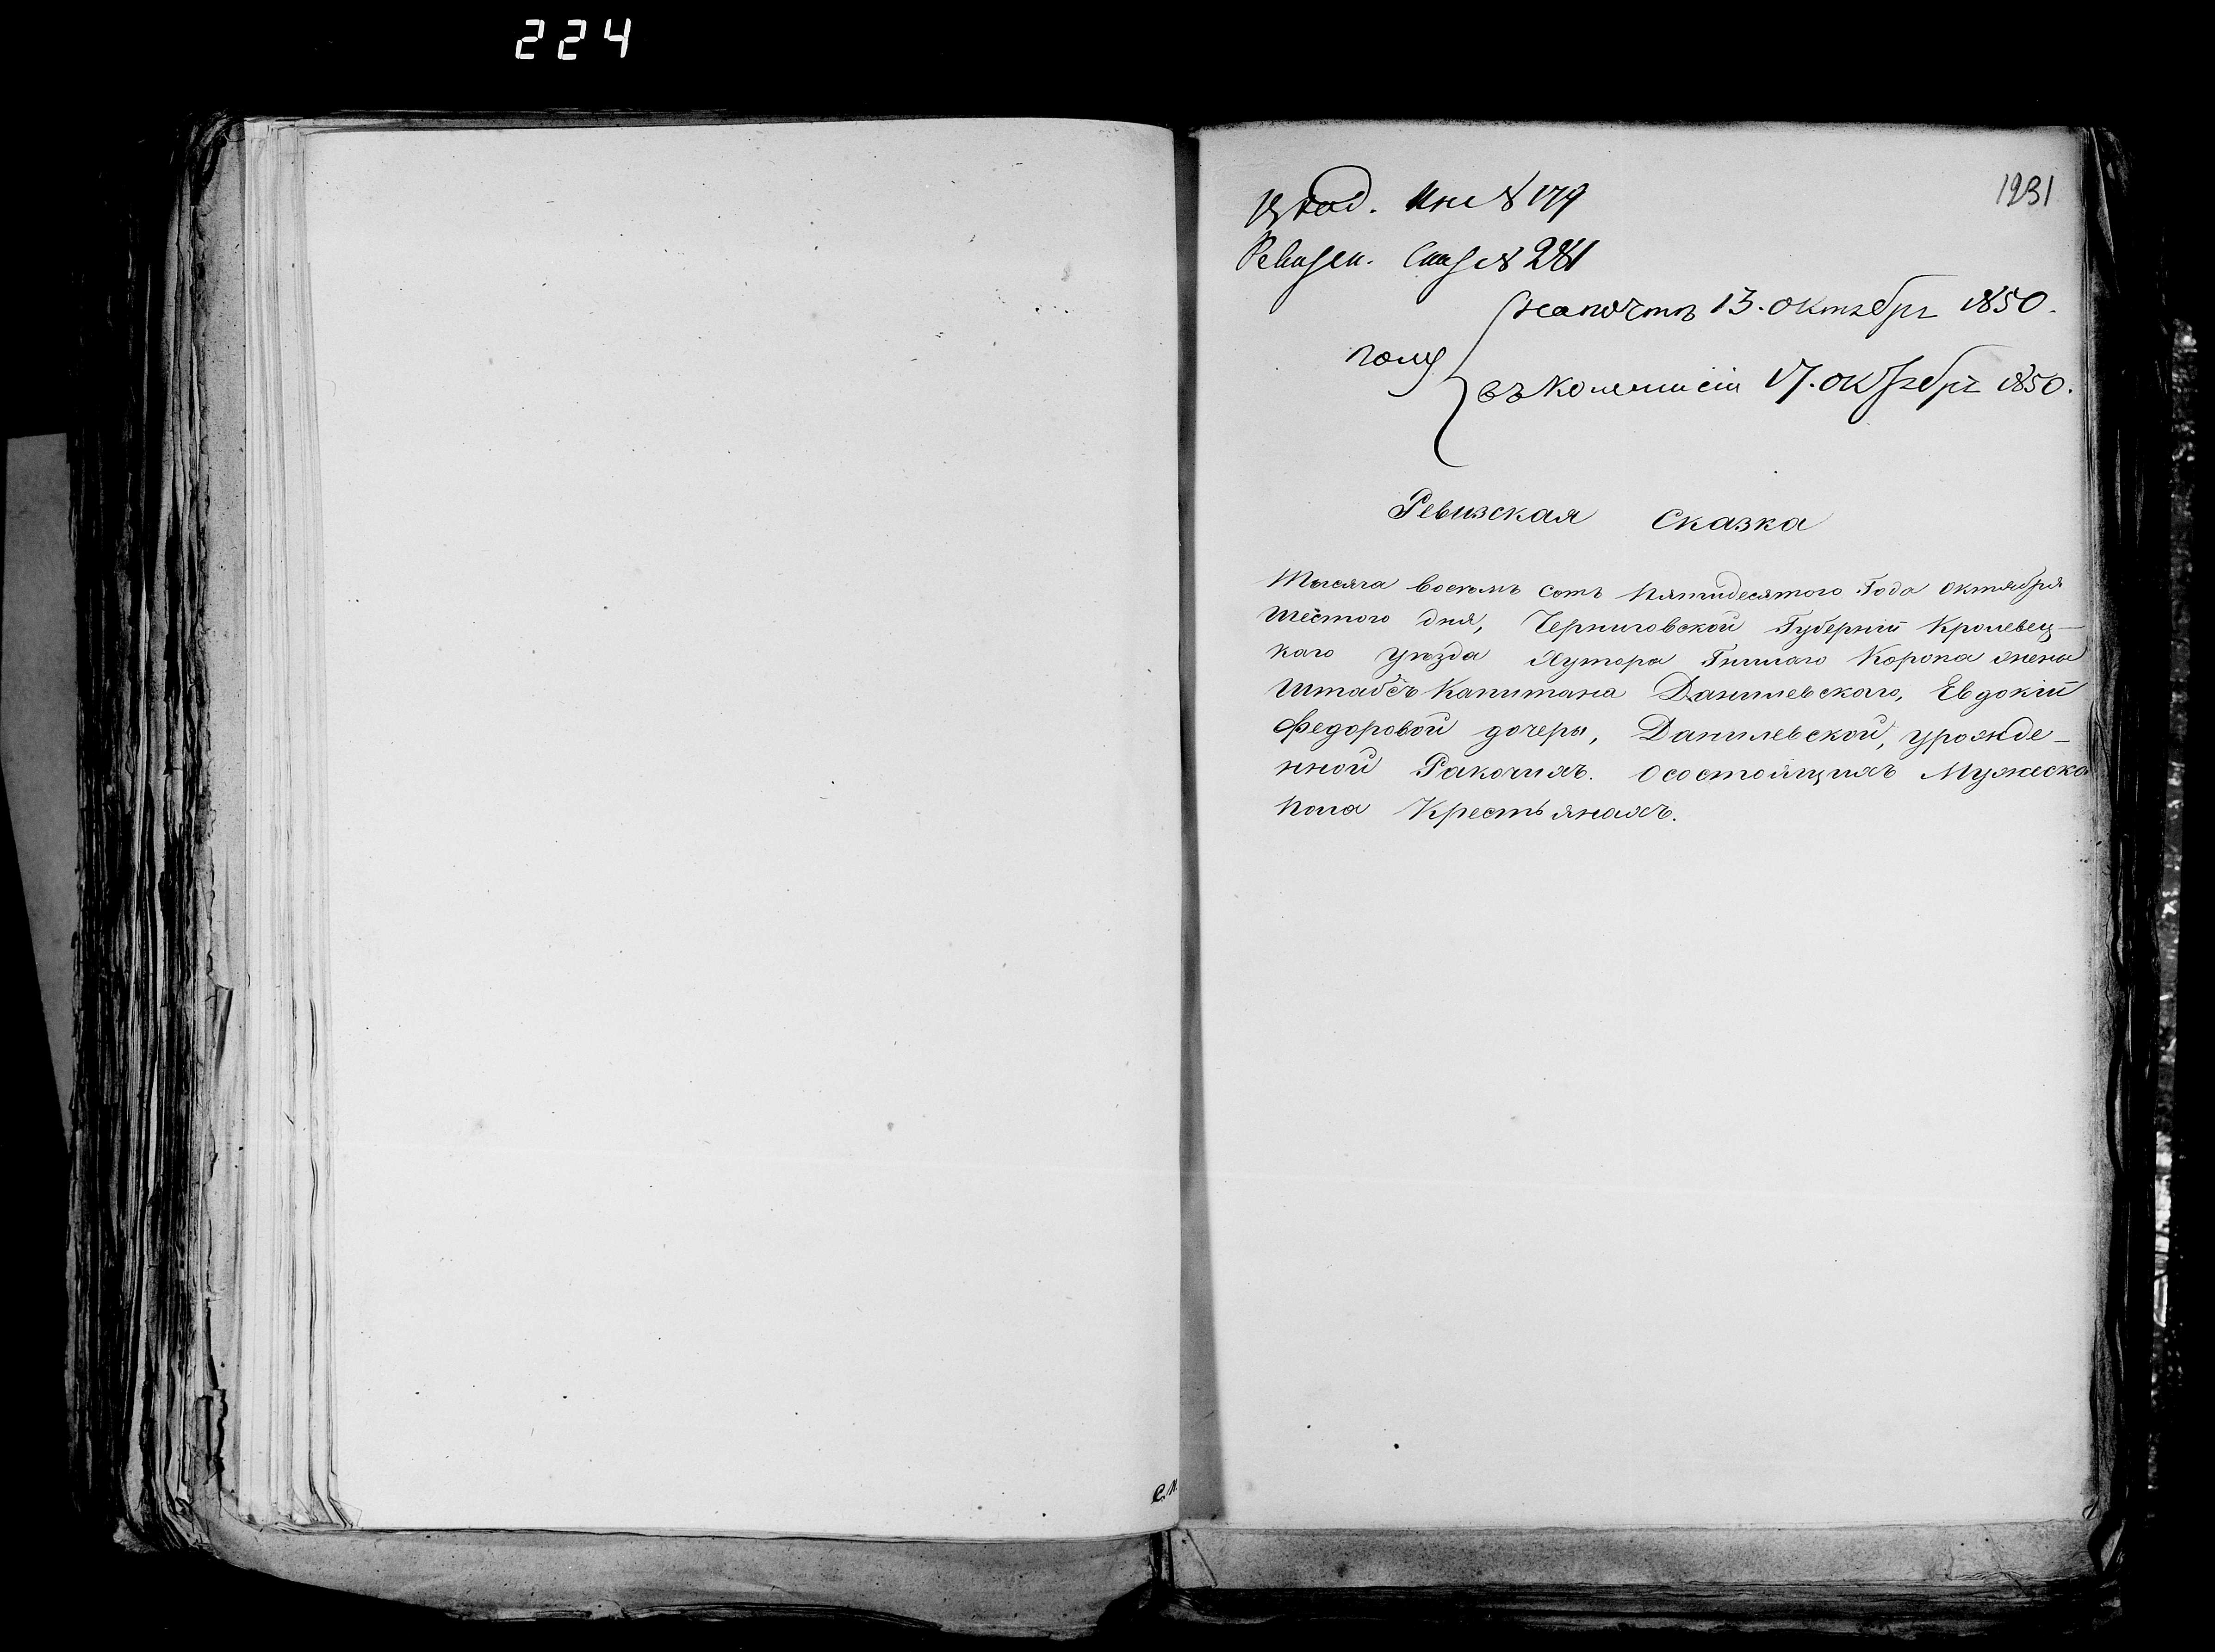 224
1231
№ 179
Ревизск. Сказ № 281
на почтѣ 13. октября 1850.
полу
въ Коммисіи 17. октября 1850.
Ревизская Сказка
Тысяча восемь сотъ пятидесятого Года октября
шестого дня, Черниговской Губерніи Кролевец-
каго уѣзда Хутора Гнилаго Коропа жены
Штабсъ Капитана Данилевского, Евдокіи
Федоровой дочеры, Данилевской, урожде-
нной Ракочихъ. О состоящихъ Мужеска
пола Крестьянахъ.